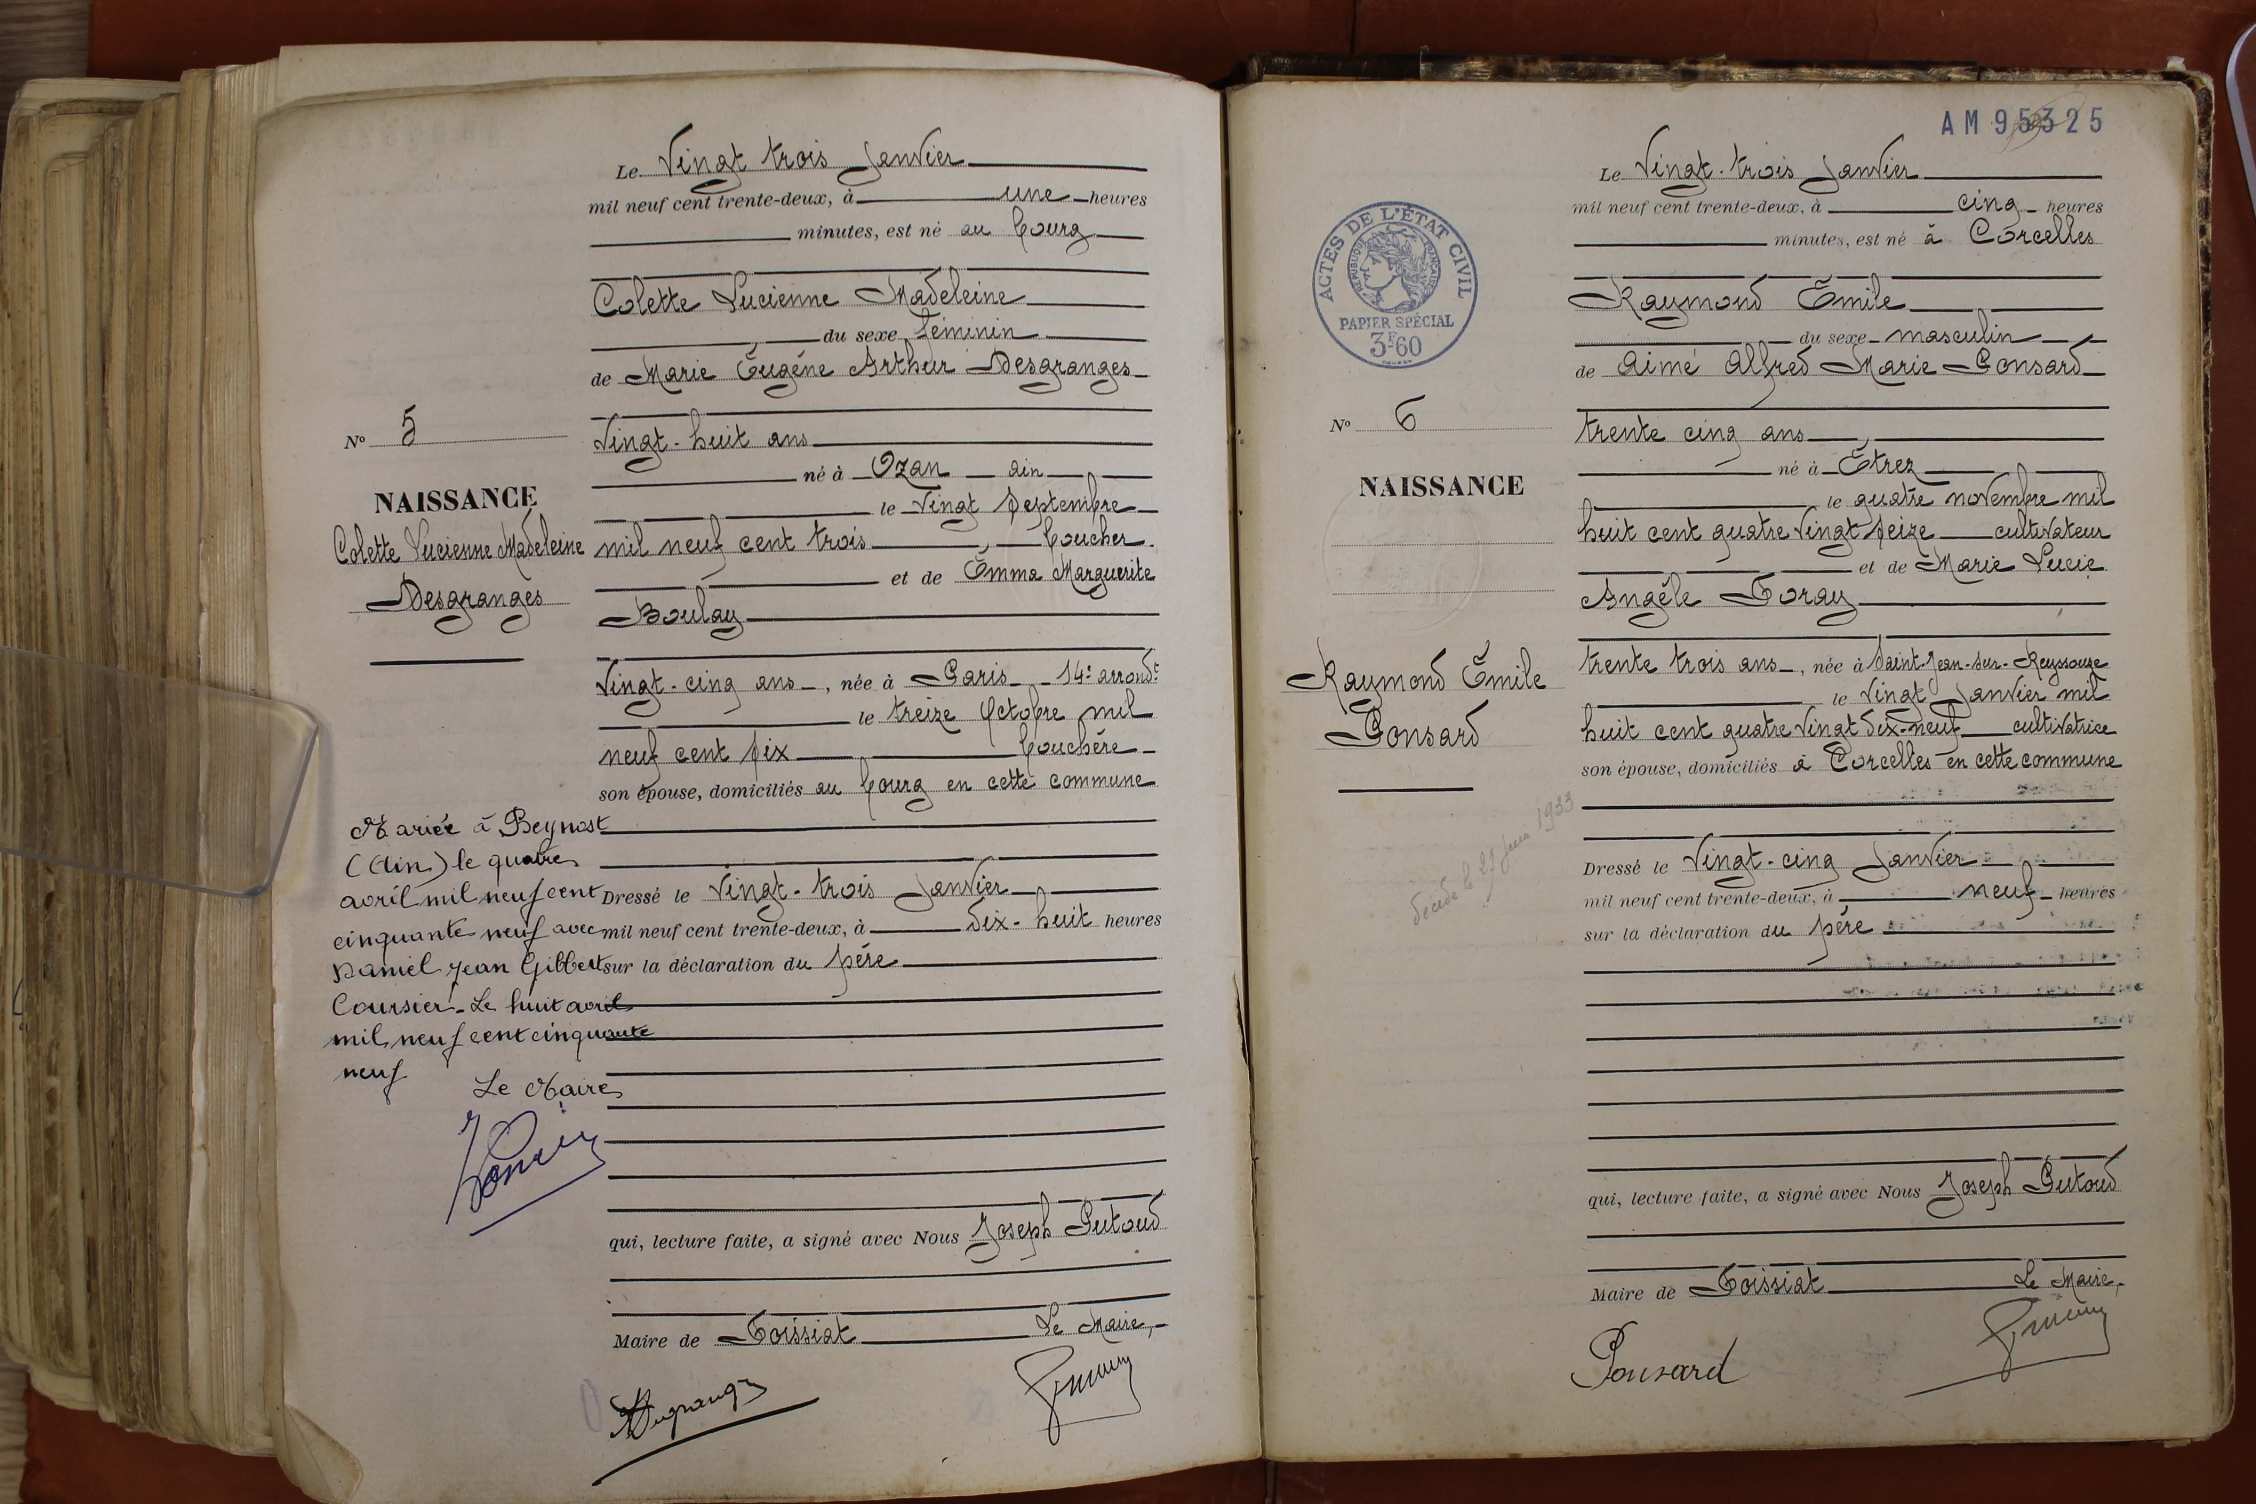 Le Vingt trois Janvier
mil neuf cent trente-deux, à une heures
minutes, est né au bourg
Colette Lucienne Madeleine
du sexe féminin
de Marie Eugène Arthur Desgranges
Vingt-huit ans
né à Ozan ain
le Vingt Septembre
mil neuf cent trois, boucher
et de Emma Marguerite
Boulay
Vingt-cinq ans, née à Paris 14e arrondt
le treize Octobre mil
neuf cent six bouchère
son épouse, domiciliés au bourg en cette commune
Dressé le Vingt-trois Janvier
mil neuf cent trente-deux, à dix-huit heures
sur la déclaration du père
qui, lecture faite, a signé avec Nous Joseph Putoud
Maire de Foissiat Le Maire,
Desgranges
No 5
NAISSANCE
Colette Lucienne Madeleine
Desgranges
Mariée à Beynost
(Ain) le quatre
avril mil neuf cent
cinquante neuf avec
Daniel Jean Gilbert
Coursier. Le huit avril
mil neuf cent cinquante
neuf
Le Maire
AM 95325
Le Vingt-trois Janvier
mil neuf cent trente-deux, à cinq heures
minutes, est né à Corcelles
Raymond Emile
du sexe masculin
de Aimé Alfred Marie Ponsard
trente cinq ans,
né à Etrez
le quatre novembre mil
huit cent quatre Vingt seize cultivateur
et de Marie Lucie
Angèle Foray
trente trois ans, née à Saint-Jean-sur-Reyssouze
le Vingt Janvier mil
huit cent quatre Vingt dix-neuf cultivatrice
son épouse, domiciliés à Corcelles en cette commune
Dressé le Vingt-cinq Janvier
mil neuf cent trente-deux, à neuf heures
sur la déclaration du père
qui, lecture faite, a signé avec Nous Joseph Putoud
Maire de Foissiat Le Maire,
Ponsard
ACTES DE L'ÉTAT CIVIL
RÉPUBLIQUE FRANÇAISE
PAPIER SPÉCIAL
3F60
No 6
NAISSANCE
Raymond Emile
Ponsard
décédé le 27 1933